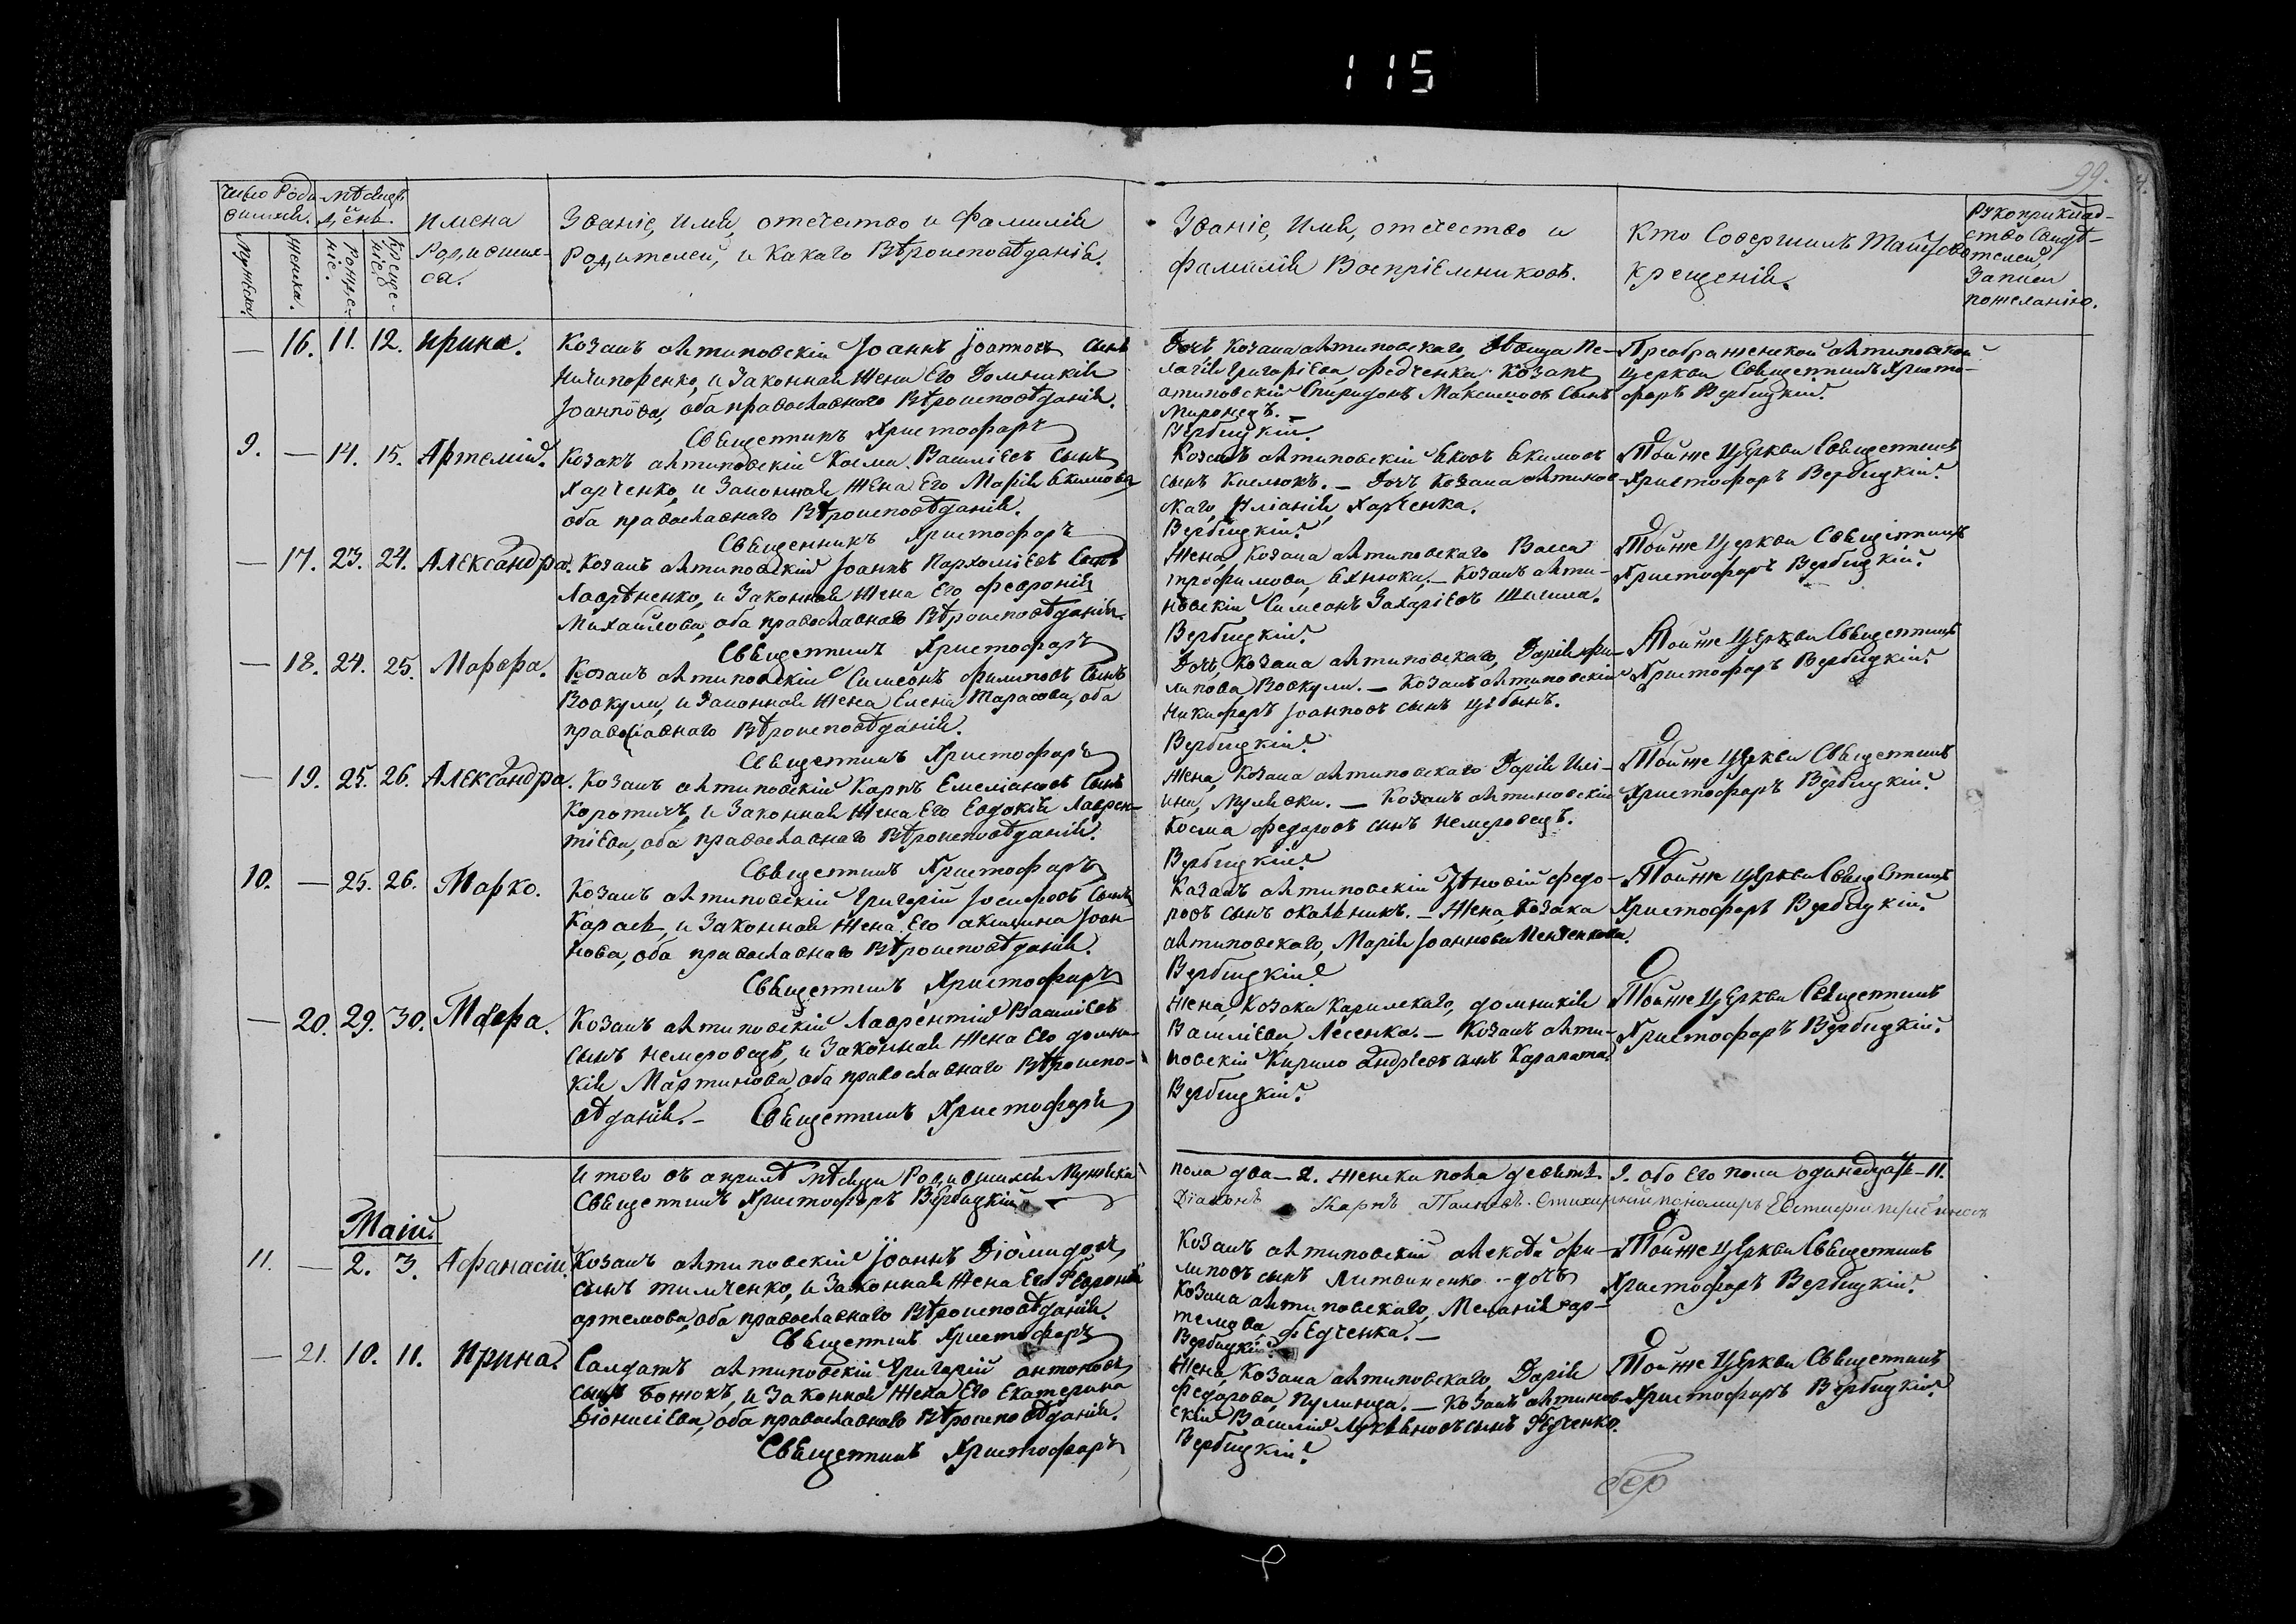 115
99.
Число Роди
вшихся.
Мѣсяцъ
и
День.
Мужска.
Женска.
Рожде-
ніе.
Креще-
ніе.
Имена
Родивших-
ся.
Званіе, Имя, отечество и Фамилія
Родителей, и Какаго Вѣроисповѣданія.
Званіе, Имя, отечество и
Фамилія Воспріемниковъ.
Кто Совершилъ Таинство
Крещенія.
Рукоприклад-
ство Свидѣ-
телей
Записи
пожеланію.
— 16. 11. 12. Ирина.
Козакъ антиповскій Іоаннъ сынъ
Ничипоренко, и Законная Жена Его Домникія
Іоаннова, оба православнаго Вѣроисповѣданія.
Священникъ Христофоръ
Дочь Козака антиповскаго, Дѣвица Пе-
лагія Григоріева, Федченка. Козакъ
антиповскій Спиридонъ Максимовъ Сынъ
Миронецъ. —
Вербицкій.
Преображенской антиповской
церкви Священникъ Христо-
форъ Вербицкій.
9. — 14. 15. Артемій.
Козакъ антиповскій Косма Василіевъ Сынъ
Харченко, и Законная Жена Его Марія Екимова
оба православнаго Вѣроисповѣданія.
Священникъ Христофоръ
Козакъ антиповскій Яковъ Якимовъ
сынъ Кислюкъ. — Дочь Козака антипов-
скаго, Уліанія, Харченка.
Вербицкій.
Тойже Церкви Священникъ
Христофоръ Вербицкій.
— 17. 23. 24. Александра.
Козакъ антиповскій Іоаннъ Пархоміевъ Сынъ
Лавриненко, и Законная Жена Его Феѳронія
Михайлова, оба православнаго Вѣроисповѣданія.
Священникъ Христофоръ
Жена Козака антиповскаго Васса
Трофимова, Яхнюка. — Козакъ анти-
повскій Симеонъ Захаріевъ
Вербицкій.
Тойже Церкви Священникъ
Христофоръ Вербицкій.
— 18. 24. 25. Марѳа.
Козакъ антиповскій Симеонъ Филиповъ Сынъ
Вовкули, и Законная Жена Елена Тарасова, оба
православнаго Вѣроисповѣданія.
Священникъ Христофоръ
Дочь Козака антиповскаго, Дарія Фи-
липова Вовкули. — Козакъ антиповскій
Никифоръ Іоанновъ сынъ
Вербицкій.
Тойже Церкви Священникъ
Христофоръ Вербицкій.
— 19. 25. 26. Александра.
Козакъ антиповскій Карпъ Емеліановъ Сынъ
Коротичъ, и Законная Жена Его Евдокія Лаврен-
тіева, оба православнаго Вѣроисповѣданія.
Священникъ Христофоръ
Жена Козака антиповскаго Дарія
— Козакъ антиповскій
Косма Федоровъ сынъ Немеровецъ.
Вербицкій.
Тойже Церкви Священникъ
Христофоръ Вербицкій.
10. — 25. 26. Марко.
Козакъ антиповскій Григорій Іосифовъ Сынъ
и Законная Жена Его Іоан-
нова, оба православнаго Вѣроисповѣданія.
Священникъ Христофоръ
Козакъ антиповскій Зѣновій Федо-
ровъ сынъ — Жена Козака
антиповскаго, Марія Іоаннова
Вербицкій.
Тойже Церкви Священникъ
Христофоръ Вербицкій.
— 20. 29. 30. Марѳа.
Козакъ антиповскій Лаврентій Василіевъ
сынъ Немеровецъ, и Законная Жена Его Домни-
кія Мартинова, оба православнаго Вѣроиспо-
вѣданія. — Священникъ Христофоръ
Жена Козака домникія
Василіева, Лесенка. — Козакъ анти-
повскій Кирило Андріевъ сынъ
Вербицкій.
Тойже Церкви Священникъ
Христофоръ Вербицкій.
Итого въ априлѣ Мѣсяцы Родившихся Мужска
пола два — 2. Женска пола девять. 9. обо Его пола одинадцать — 11.
Священникъ Христофоръ Вербицкій
Діаконъ Карпъ
Маій.
11. — 2. 3. Афанасій.
Козакъ антиповскій Іоаннъ Діомидовъ
сынъ Тимченко, и Законная Жена Его Февронія
артемова, оба православнаго Вѣроисповѣданія.
Священникъ Христофоръ
Козакъ антиповскій Алексѣй Фи-
липовъ сынъ Литвиненко. — дочь
Козака антиповскаго, Меланія ар-
темова Федченка. —
Вербицкій.
Тойже Церкви Священникъ
Христофоръ Вербицкій.
— 21. 10. 11. Ирина.
Салдатъ антиповскій Григорій антоновъ
сынъ Божокъ, и Законная Жена Его Екатерина
Діонисіева, оба православнаго Вѣроисповѣданія.
Священникъ Христофоръ
Жена Козака антиповскаго, Дарія
Федорова, Пулинца. — Козакъ антипов-
скій Василій сынъ Федченко.
Вербицкій.
Тойже Церкви Священникъ
Христофоръ Вербицкій.